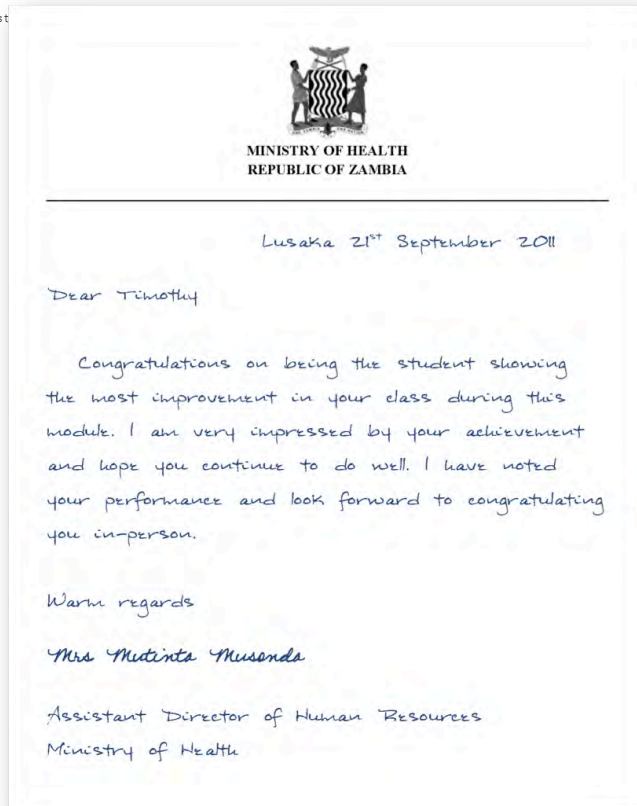 st
MINISTRY OF HEALTH
REPUBLIC OF ZAMBIA
Lusaka 21st September 2011
Dear Timothy
Congratulations on being the student showing
the most improvement in your class during this
module. I am very impressed by your achievement
and hope you continue to do well. I have noted
your performance and look forward to congratulating
you in-person.
Warm regards
Mrs Mutinta Musonda
Assistant Director of Human Resources
Ministry of Health